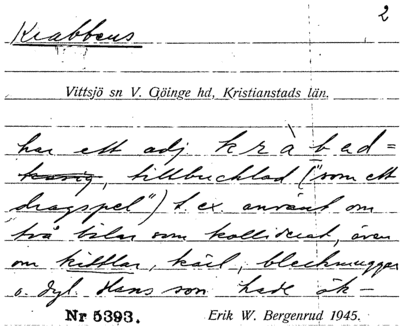 2
Krabbens
Vittsjö sn V. Göinge hd, Kristianstads län.
har ett adj. krabad=
tillbucklad ("som ett
dragspel") t. ex. använt om
två bilar som kolliderat, även
om kittlar, kärl, bleckmuggar
o. dyl. Hans son hade åk-
Nr 5393. Erik W. Bergenrud 1945.